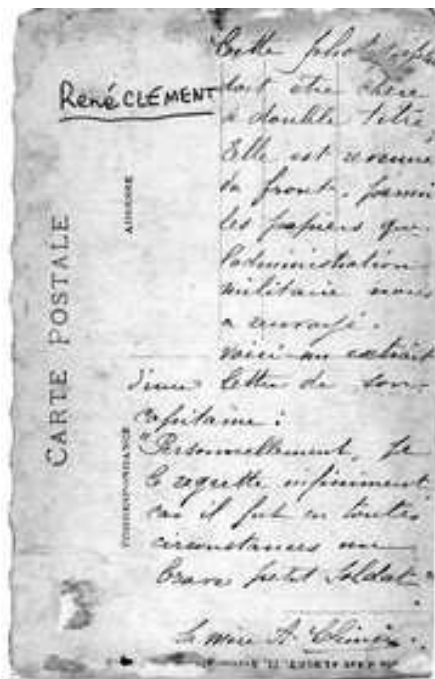 René CLEMENT
CARTE POSTALE
ADRESSE
CORRESPONDANCE
Cette photographie
doit être chère
à double titre,
Elle est revenue
du front, parmi
les papiers que
l'administration
militaire nous
a renvoyé.
Voici un extrait
d'une lettre de son
capitaine :
"Personnellement, je
le regrette infiniment
car il fut en toutes
circonstances un
brave petit soldat"